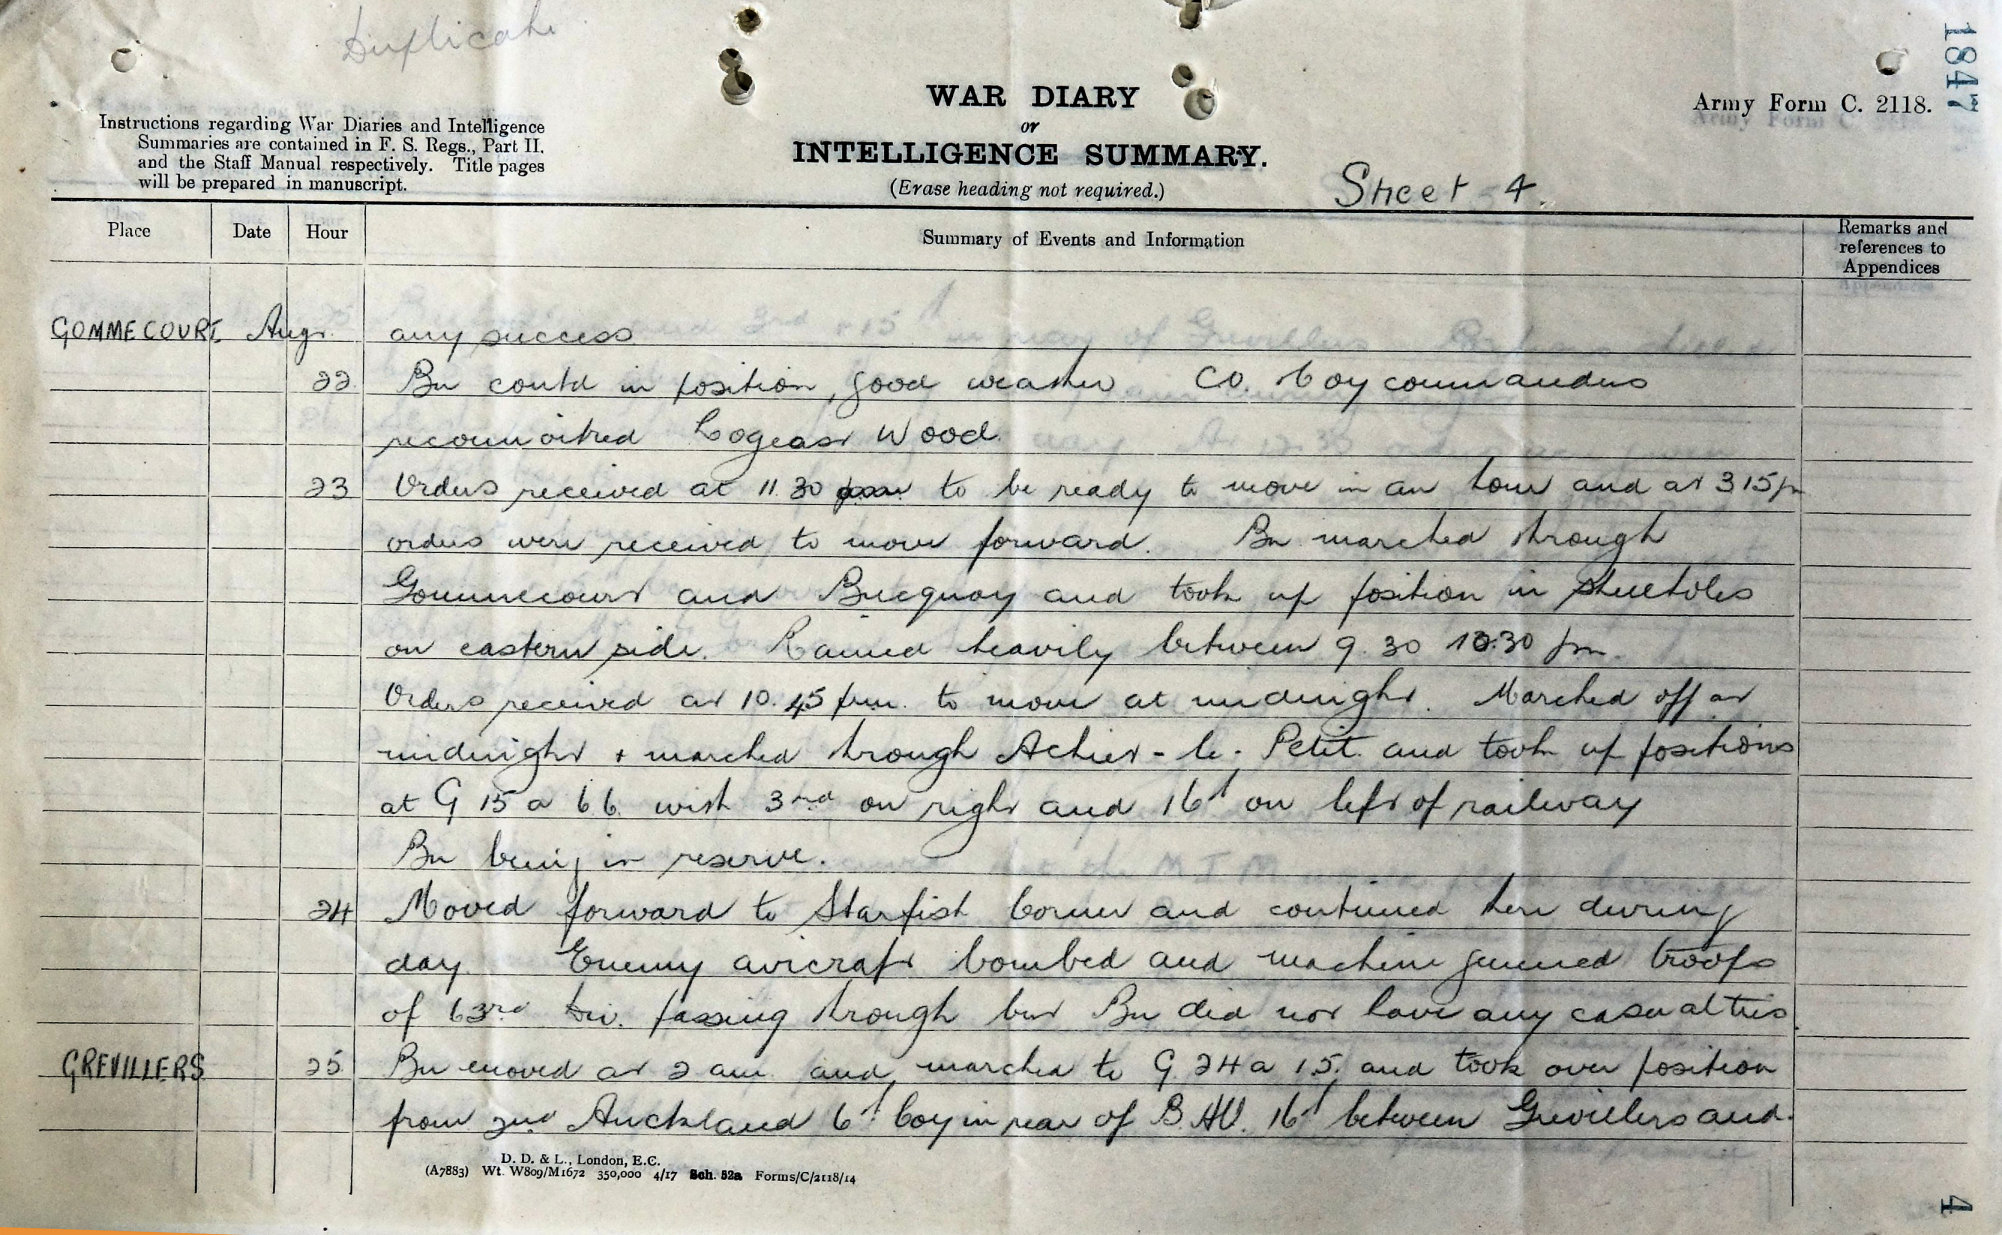 Duplicate
1847
Instructions regarding War Diaries and Intelligence
Summaries are contained in F. S. Regs., Part II.
and the Staff Manual respectively. Title pages
will be prepared in manuscript.
WAR DIARY
or
INTELLIGENCE SUMMARY.
(Erase heading not required.)
Army Form C. 2118.
Sheet 4.
Place Date Hour Summary of Events and Information Remarks and references to Appendices
GOMMECOURT Augt. any success
22 Bn contd in position, good weather CO. & Coy commanders
reconnoitred Logeast Wood.
23 Orders received at 11.30 to be ready to move in an hour and at 3 15 pm
orders were received to move forward. Bn marched through
Gommecourt and Bucquoy and took up position in shellholes
on eastern side. Rained heavily between 9.30 10.30 pm.
Orders received at 10.45 pm. to move at midnight. Marched off at
midnight + marched through Achiet-le-Petit and took up positions
at G 15 a 6 6 with 3rd on right and 16th on left of railway
Bn being in reserve.
24 Moved forward to Starfish Corner and continued here during
day. Enemy aircraft bombed and machine gunned troops
of 63rd Div. passing through but Bn did not have any casualties.
GREVILLERS 25 Bn moved at 2 am and marched to G 24 a 1 5. and took over position
from 2nd Auckland 6th Coy in rear of 16th between Grevillers and
D. D. & L., London, E.C.
(A7883) Wt. W809/M1672 350,000 4/17 Sch. 52a Forms/C/2118/14
4